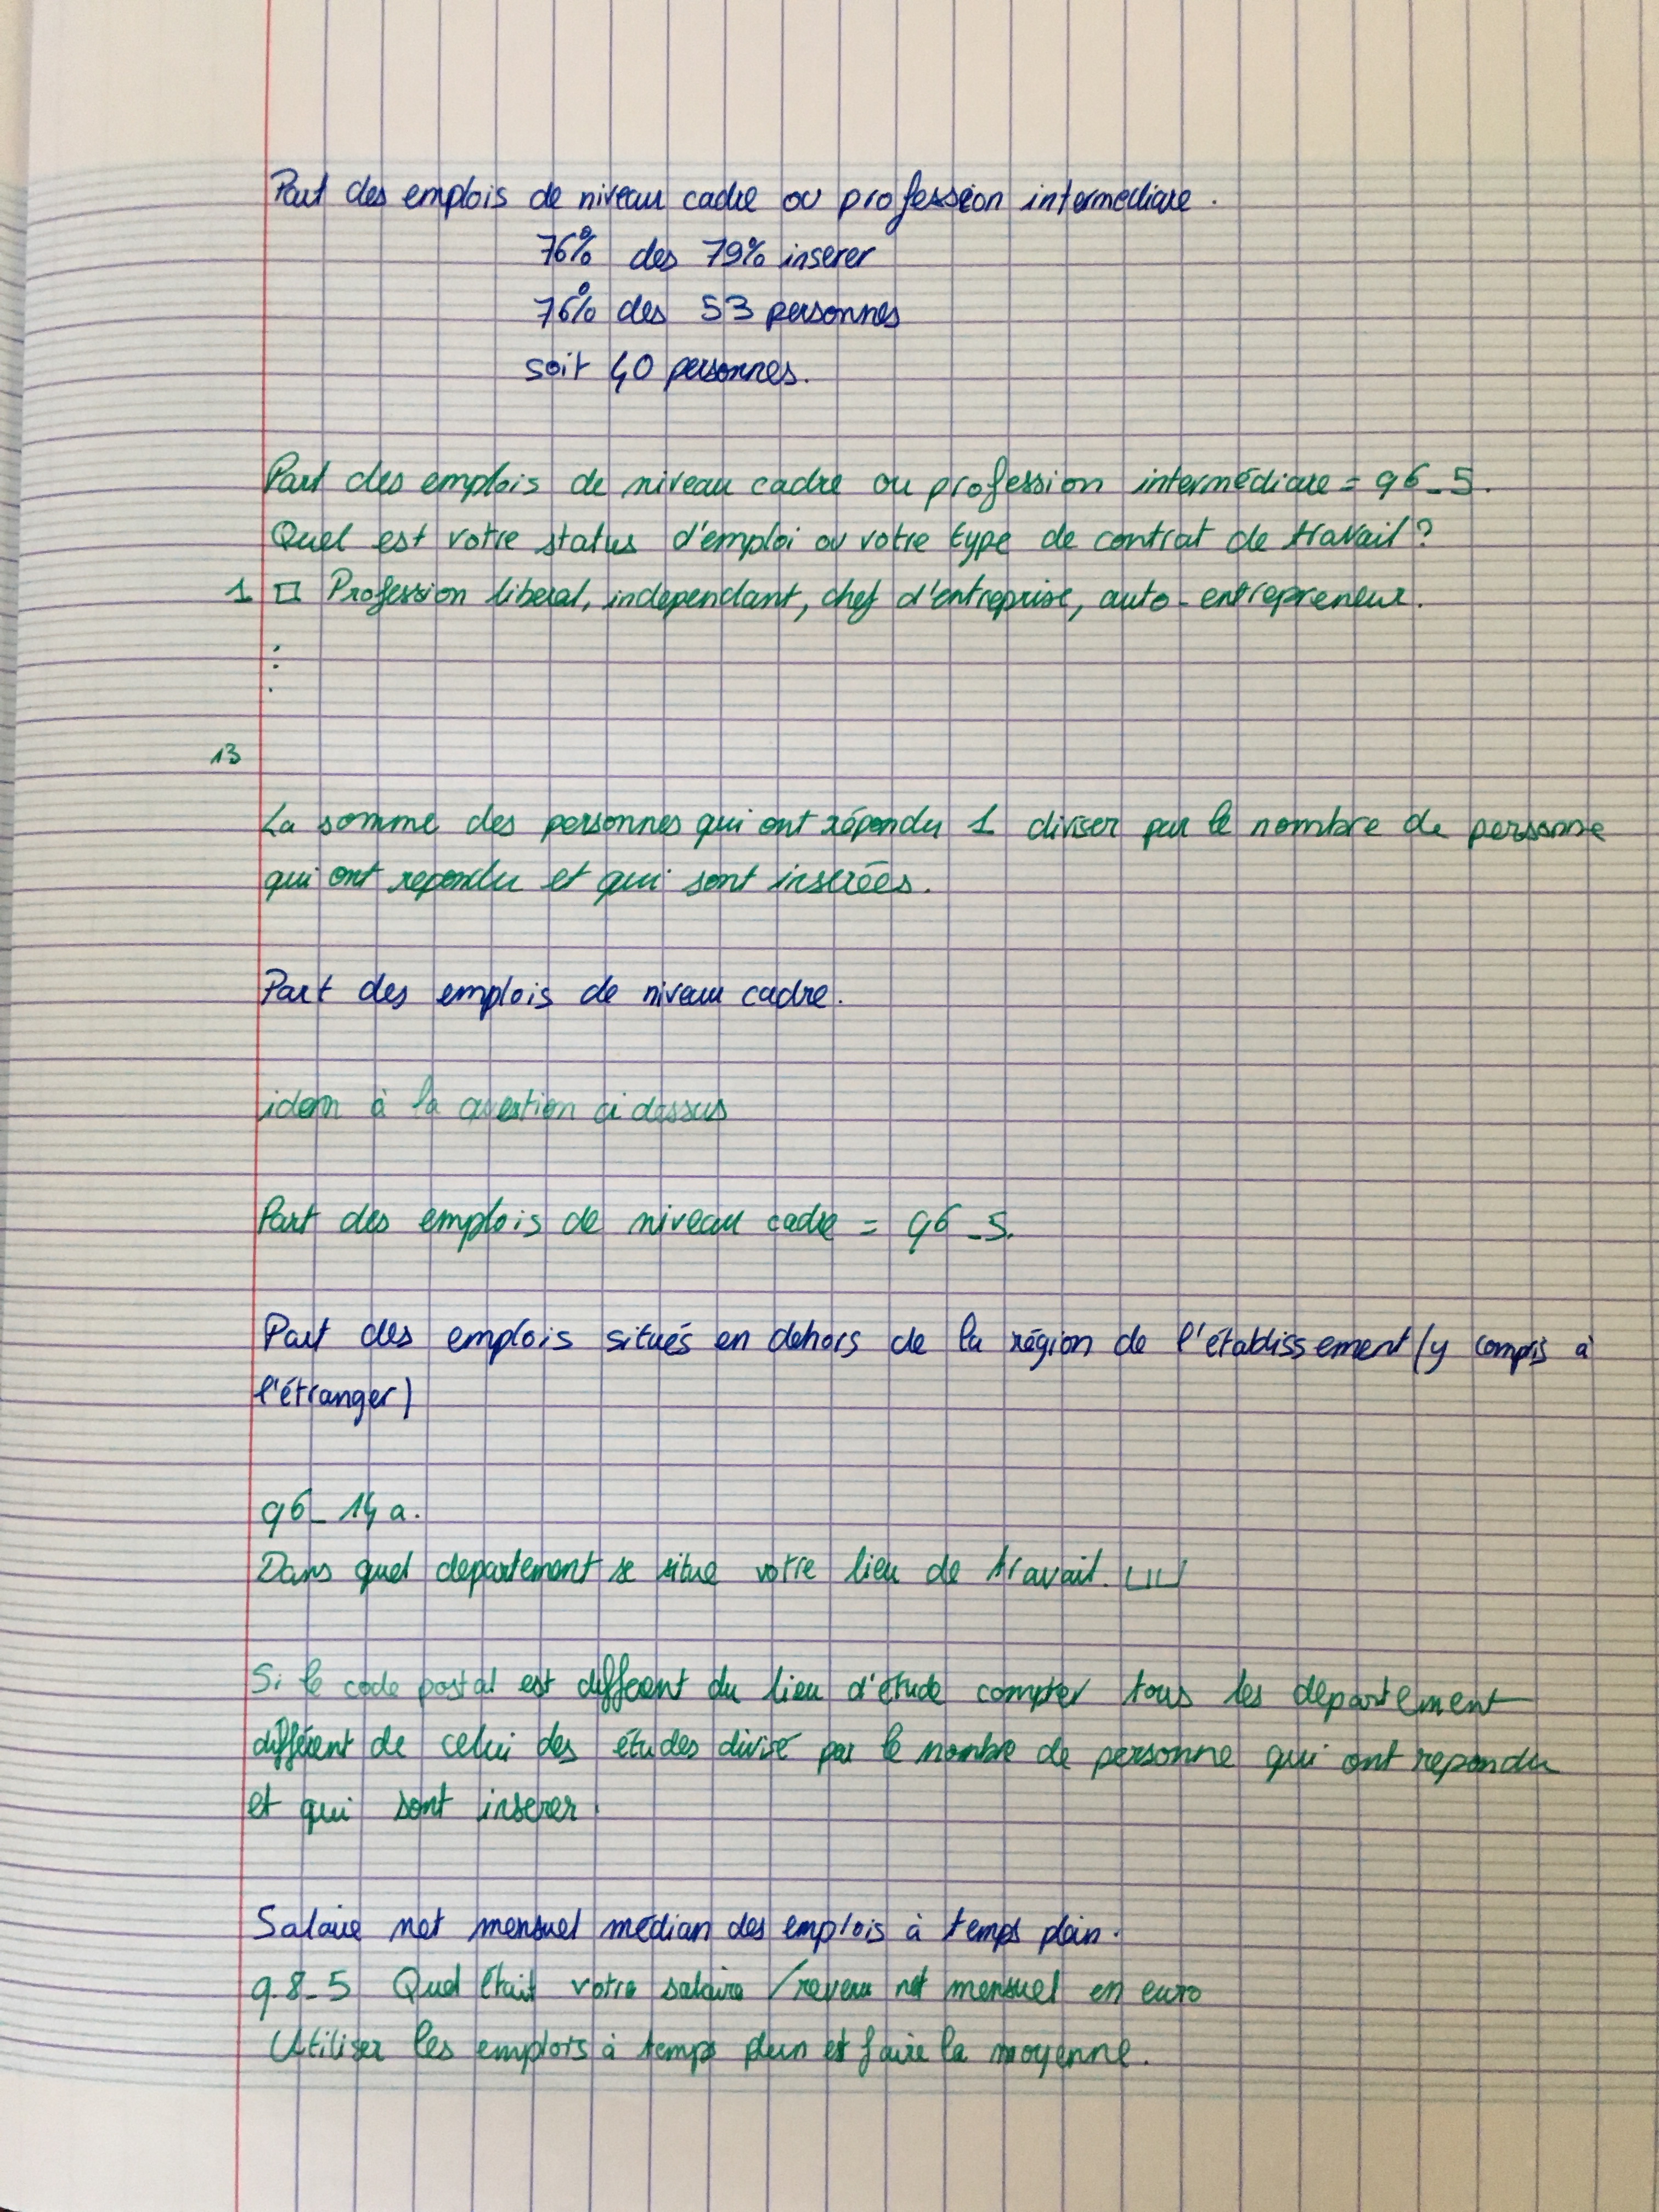 Part des emplois de niveau cadre ou profession intermediaire.
76% des 79% inserer
76% des 53 personnes
soit 40 personnes.
Part des emplois de niveau cadre ou profession intermédiaire = q6_5.
Quel est votre status d'emploi ou votre type de contrat de travail ?
1 □ Profession liberal, independant, chef d'entreprise, auto-entrepreneur.
⋮
13
La somme des personnes qui ont répondu 1 diviser par le nombre de personne
qui ont repondu et qui sont insérées.
Part des emplois de niveau cadre.
idem à la question ci dessus
Part des emplois de niveau cadre = q6_5.
Part des emplois situés en dehors de la région de l'établissement (y compris à
l'étranger)
q6_14a.
Dans quel departement se situe votre lieu de travail. ⊔⊔⊔
Si le code postal est different du lieu d'étude compter tous les departement
différent de celui des études divisé par le nombre de personne qui ont repondu
et qui sont inserer.
Salaire net mensuel médian des emplois à temps plein.
q.8_5 Quel était votre salaire / revenu net mensuel en euro
Utiliser les emplois à temps plein et faire la moyenne.